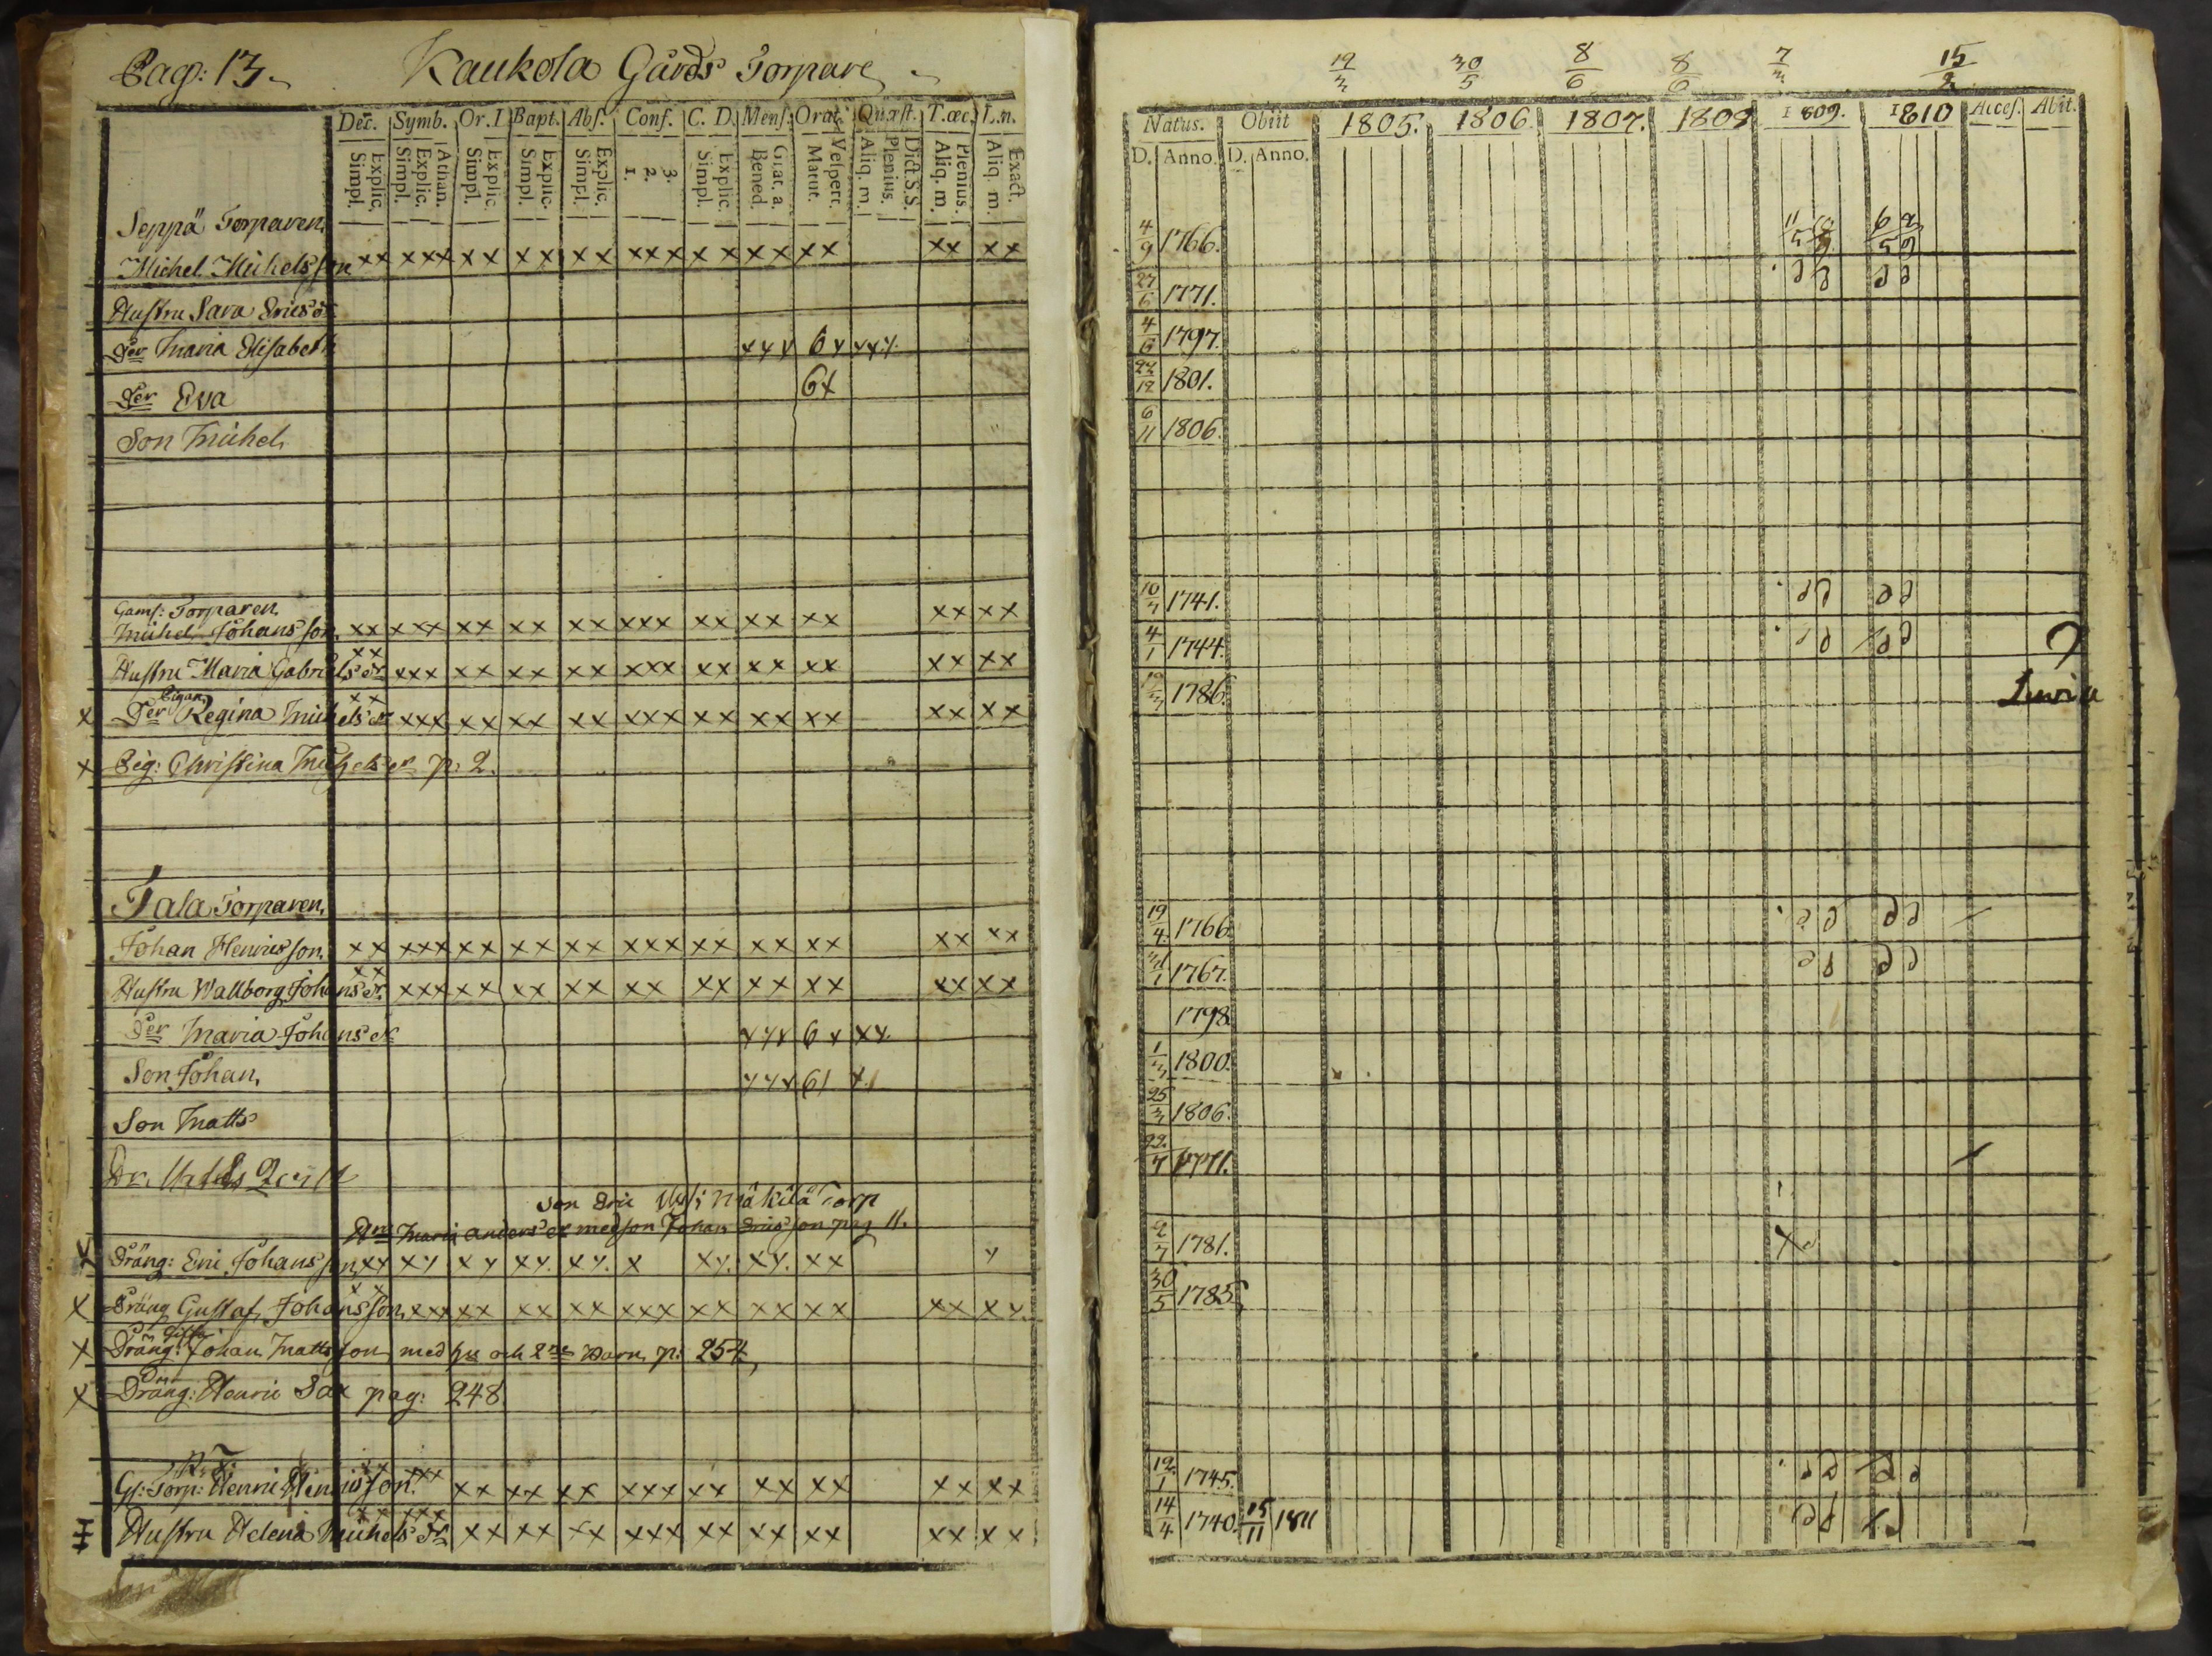 Pag: 13. Kaukola Gårds Torpare
Dec. Symb. Or.I Bapt. Abs. Conf. C. D. Mens. Orat. Quæst. T.œc. L.n.
Explic. Simpl. Athan. Explic. Simpl. Explic. Simpl. Explic. Simpl. Explic. Simpl. 3. 2. 1. Explic. Simpl. Grat. a. Bened. Vesperr. Matut. Dict. S.S. Plenius. Aliq. m. Plenius. Aliq. m. Exact. Aliq. m.
Seppä Torparen
Michel Michelsson xx xxx xx xx xx xxx xx xx xx xx xx
Hustru Sara Ericsdr
Der Maria Elisabeth xxx 6x xxx
Der Eva 6x
Son Michel
Gaml: Torparen
Michel Johansson xx xxx xx xx xx xxx xx xx xx xx xx
Hustru Maria Gabrielsdr xx xxx xx xx xx xxx xx xx xx xx xx
x Der Regina Michelsdr xx xxx xx xx xx xxx xx xx xx xx xx
x Pig: Christina Michelsdr p: 2.
Tala Torparen
Johan Henricsson xx xxx xx xx xx xxx xx xx xx xx xx
Hustru Wallborg Johansdr xx xxx xx xx xx xx xx xx xx xx xx
Der Maria Johansdr xxx 6x xx
Son Johan xxx 61 x
Son Matts
Son Eric Mäkilä Torp
Maria Andersdr med son Johan Ericsson pag 11.
x Dräng: Eric Johansson xx xx xx xx xx x xx xx xx x
x Dräng Gustaf Johansson xx xxx xx xx xxx xx xx xx xx xx
x Dräng: Johan Mattsson med hu och 2ne Barn p: 254
x Dräng: Henric Sax pag: 248
Gl: Torp: Henric Henricsson xx xxx xx xx xx xxx xx xx xx xx xx
Hustru Helena Michelsdr xx xxx xx xx xx xxx xx xx xx xx xx
19/3 30/5 8/6 8/6 7/3 15/2
Natus. Obiit 1805. 1806. 1807. 1808 1809. 1810 Acces. Abit.
D. Anno. D. Anno.
4/9 1766.
27/6 1771.
4/6 1797.
22/12 1801.
6/11 1806.
10/3 1741.
4/1 1744.
1786.
19/4 1766.
1767.
1798
1/3 1800.
25/3 1806.
22/7 1771.
2/7 1781.
30/5 1785
12/1 1745.
14/4 1740. 15/11 1811